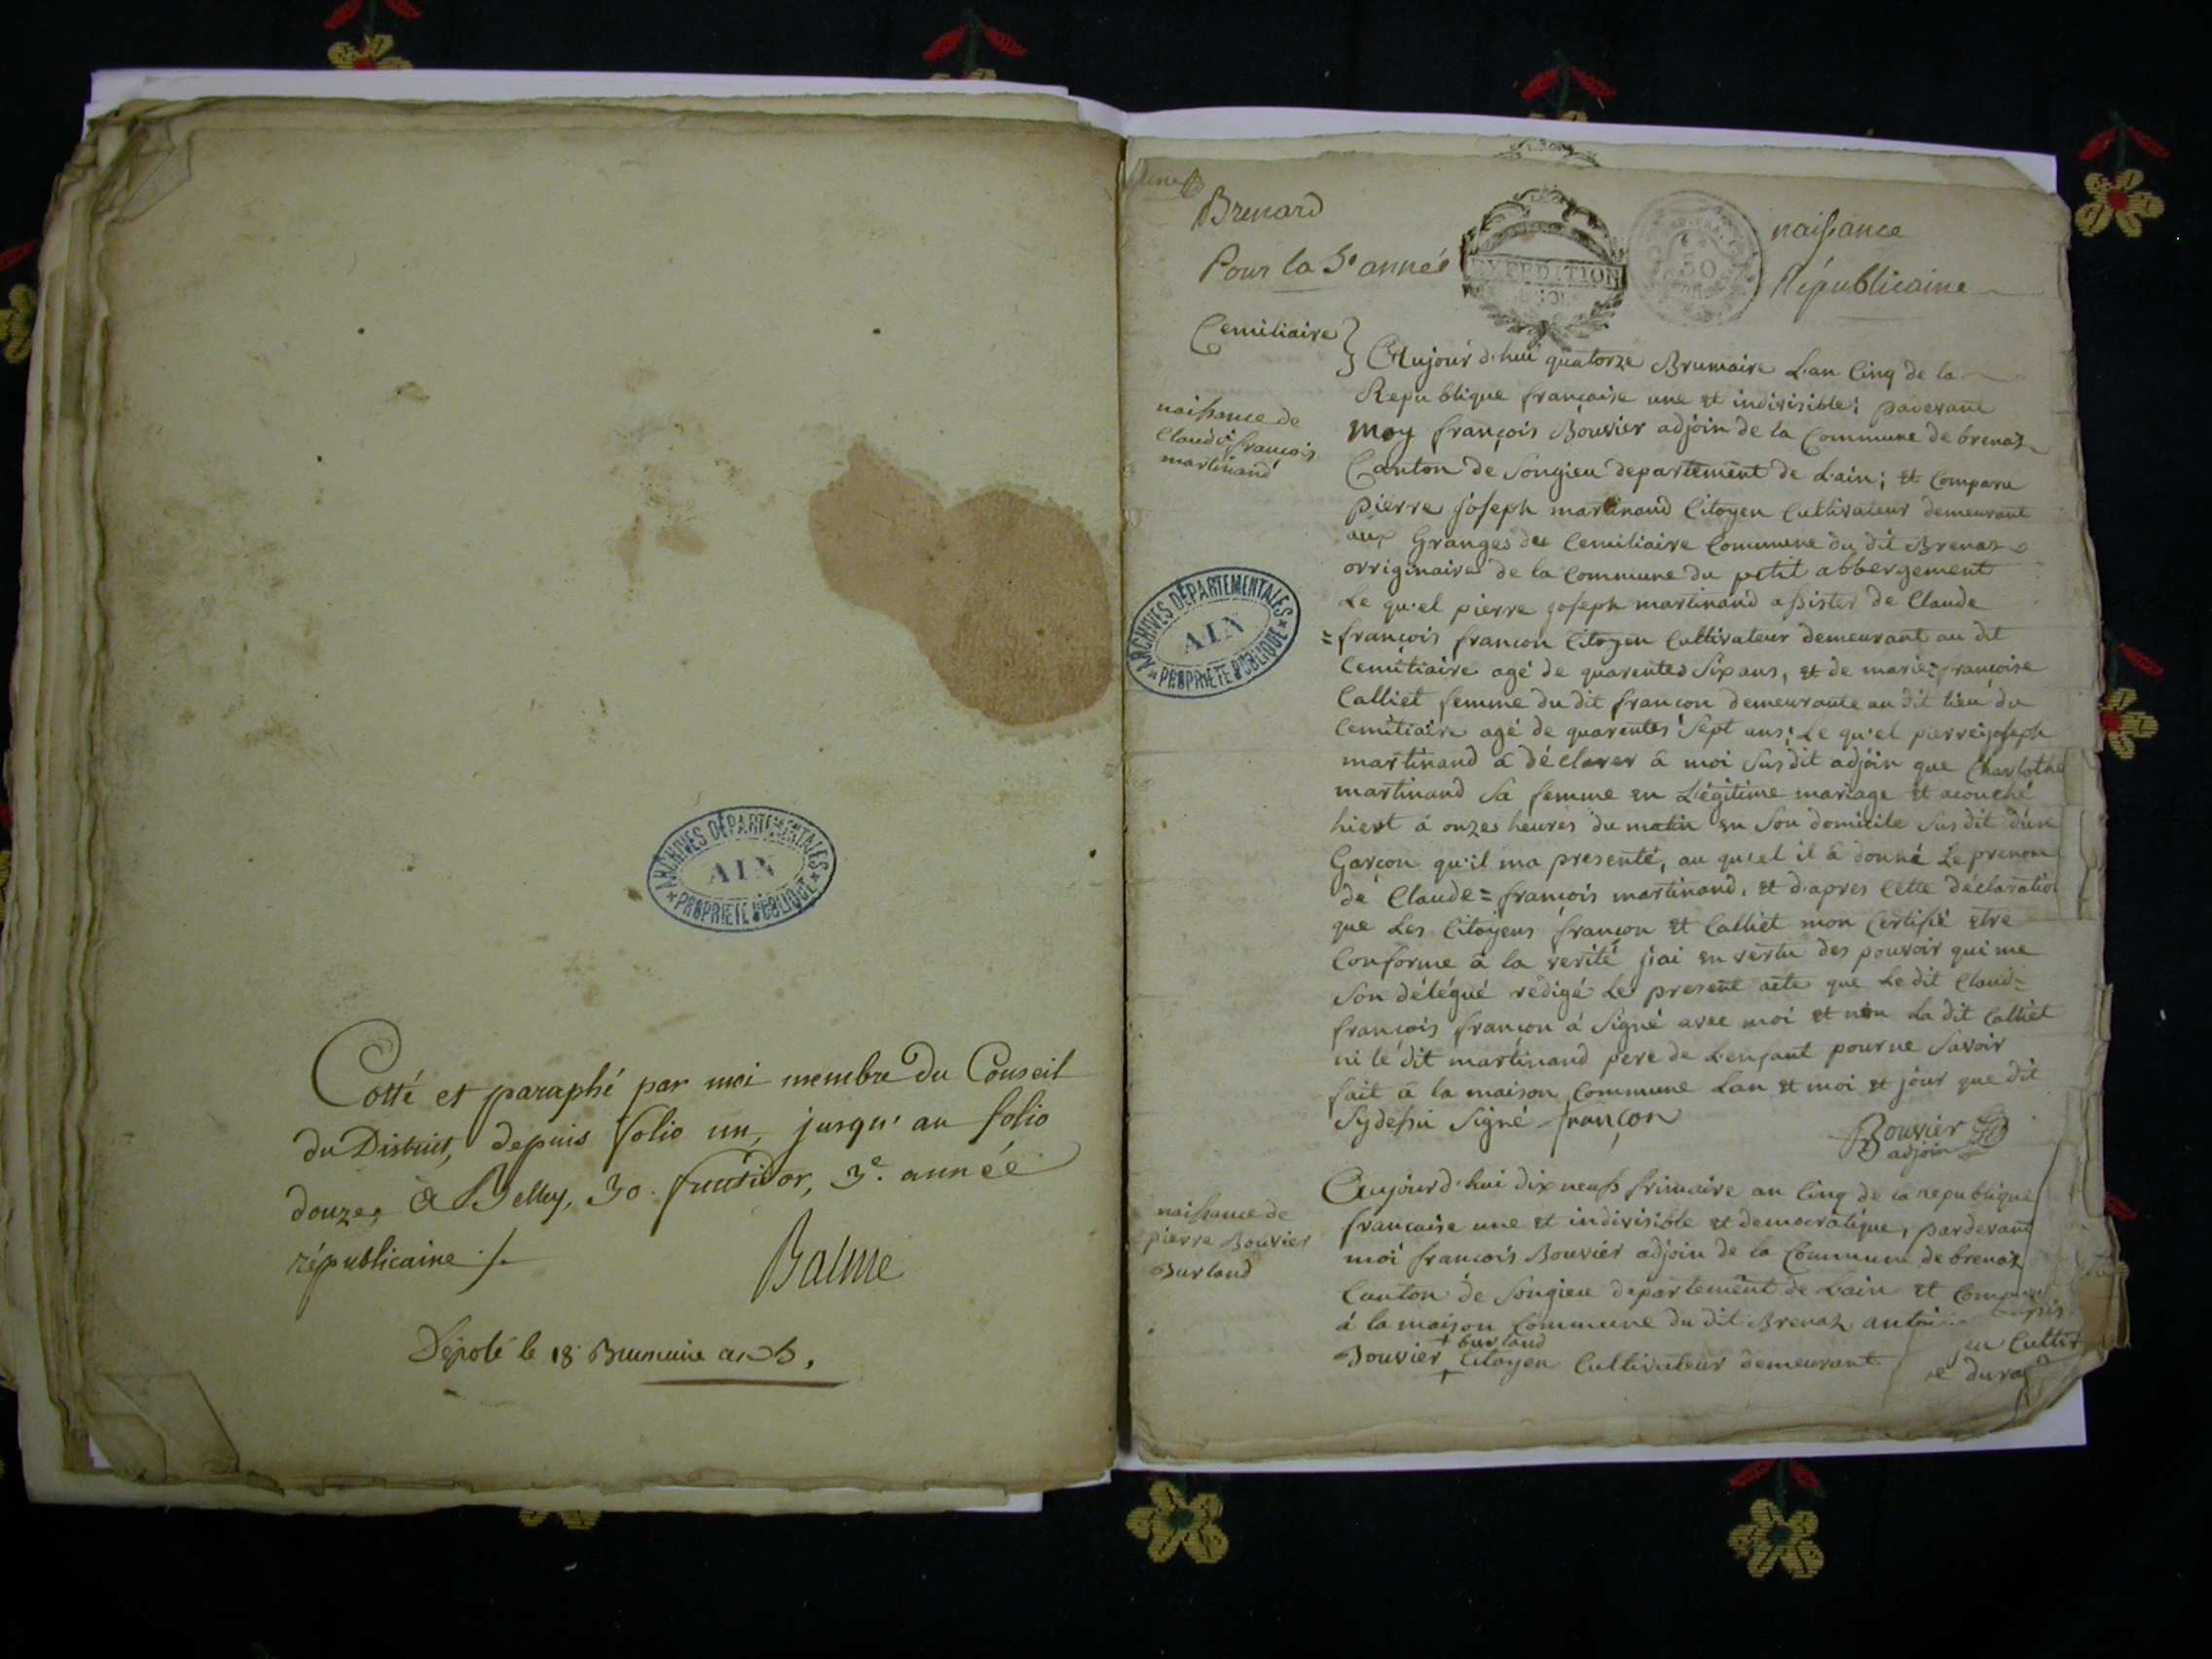 ARCHIVES DÉPARTEMENTALES
AIN
PROPRIÉTÉ PUBLIQUE
Cotté et paraphé par moi membre du Conseil
du District, depuis folio un, jusqu'au folio
douze, à Belley, 30. fructidor, 3e. année
républicaine ./.
Balme
Déposé le 18 Brumaire an 5.
Brenard
naissance
Pour la 5e année
EXPEDITION
50
Républicaine
Cemiliaire
naissance de
Claude françois
martinand
Aujour d'hui quatorze Brumaire L'an Cinq de la
Republique française une et indivisible; padevant
moy françois Bouvier adjoin de la Commune de brenaz
Canton de Songieu departement de L'ain; et Comparu
pierre joseph martinand Citoyen Cultivateur demeurant
aux Granges de Cemiliaire Commune du dit Brenaz
orriginaire de la Commune du petit abbergement
Le qu'el pierre joseph martinand assister de Claude
= françois françon Citoyen Cultivateur demeurant au dit
Cemitiaire agé de quarentes Six ans, et de marie françoise
Calliet femme du dit françon demeurante au dit lieu du
Cemitiaire agé de quarentes Sept ans; Le qu'el pierre joseph
martinand à déclarer à moi Susdit adjoin que Charlothe
martinand Sa femme en Légitime mariage et acouché
hiert à onzes heures du matin en Son domicile Sus dit d'un
Garçon qu'il ma presenté, au qu'el il à donné Le prenom
de Claude = françois martinand, et d'apres Cette déclaratio
que Les Citoyens françon et Calliet mon Certifié etre
Conforme à la verité j'ai en vertu des pouvoir qui me
Son délégué redigé Le present acte que Le dit Claud=
françois françon à Signé avec moi et non La dit Calliet
ni le dit martinand pere de L'enfant pour ne Savoir
fait à la maison Commune Lan et moi et jour que dit
Sydessu Signé françon
Bouvier
adjoin
ARCHIVES DÉPARTEMENTALES
AIN
PROPRIÉTÉ PUBLIQUE
naissance de
pierre Bouvier
Burland
Aujourd'hui dix neuf frimaire an Cinq de la republique
française une et indivisible et democratique, pardevant
moi françois Bouvier adjoin de la Commune de brenaz
Canton de Songieu departement de Lain et
à la maison Commune du dit Brenaz
+ burland
Bouvier + Citoyen Cultivateur demeurant